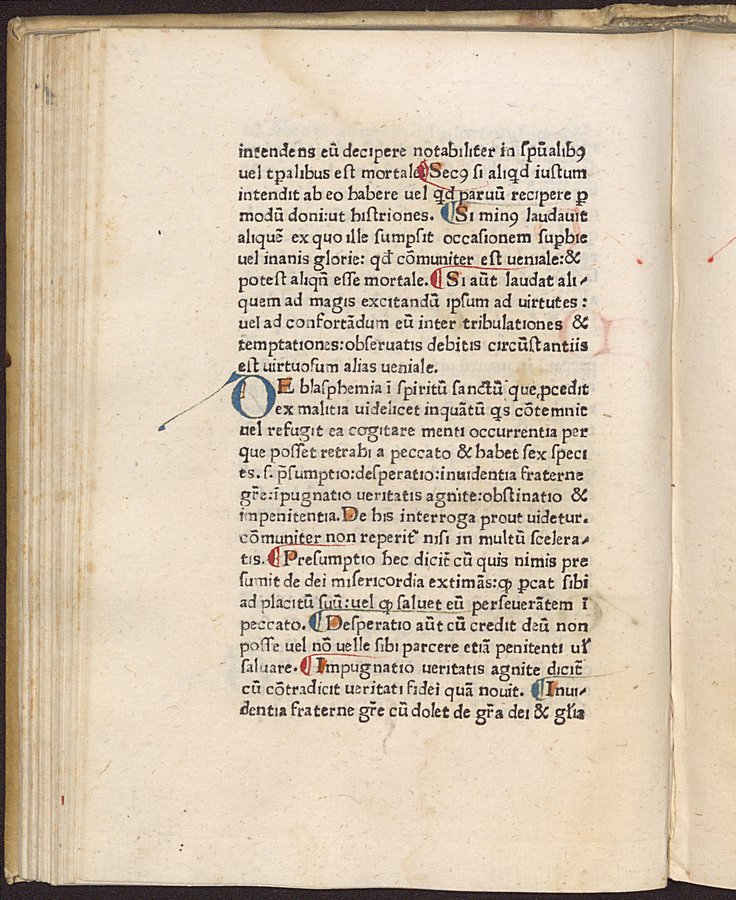 intendens eū decipere notabiliter in spūalibꝰ
uel tp̄alibus est mortale Secꝰ si aliqd iustum
intendit ab eo habere uel qd paruū recipere ꝑ
modū doni:ut histriones. Si minꝰ laudauit
aliquē ex quo ille sumpsit occasionem supbie
uel inanis glorie: qd̄ cōmuniter est ueniale:&
potest aliqn̄ esse mortale. Si aūt laudat ali-
quem ad magis excitandū ipsum ad uirtutes :
uel ad confortādum eū inter tribulationes &
temptationes:obseruatis debitis circūstantiis
est uirtuosum alias ueniale.
DE blasphemia ī spiritū sanctū que ꝓcedit
ex malitia uidelicet inquātū qs cōtemnit
uel refugit ea cogitare menti occurrentia per
que posset retrahi a peccato & habet sex speci
es. s. p̄sumptio:desperatio:inuidentia fraterne
gr̄e:īpugnatio ueritatis agnite:obstinatio &
impenitentia. De his interroga prout uidetur.
cōmuniter non reperit᷑ nisi in multū scelera-
tis. Presumptio hec dicit᷑ cū quis nimis pre
sumit de dei misericordia extimās:ꝙ pcat sibi
ad placitū suū:uel ꝙ saluet eū perseuerātem ī
peccato. Desperatio aūt cū credit deū non
posse uel nō uelle sibi parcere etiā penitenti ul̄
saluare. Impugnatio ueritatis agnite dicit᷑
cū cōtradicit ueritati fidei quā nouit. Inui-
dentia fraterne gr̄e cū dolet de gr̄a dei & gl̄ia